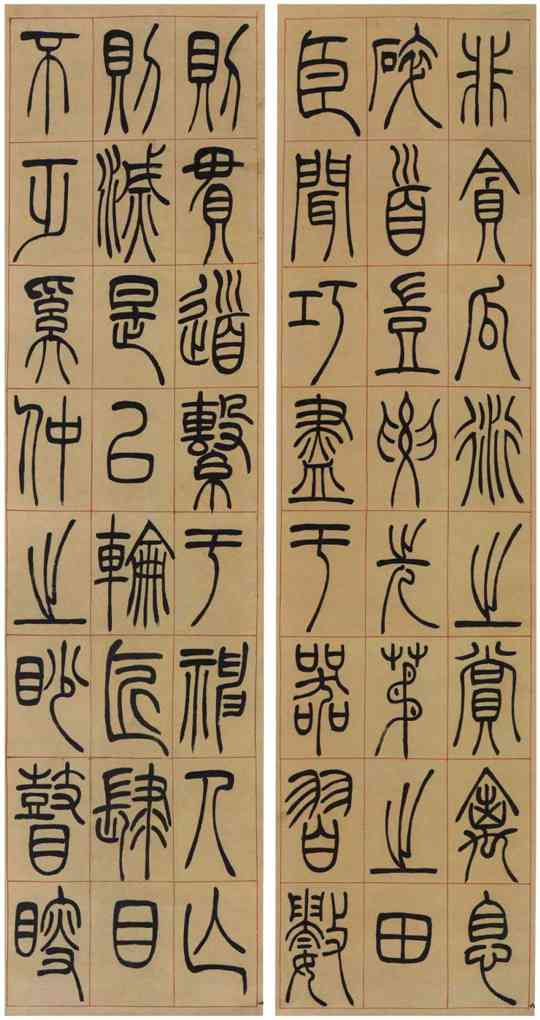 非貪瓜衍之賞禽息
碎首豈要先茅之田
臣聞巧盡于器習數
則貫道繫于神人亡
則滅是以輪匠肆目
不乏奚仲之眇瞽瞍